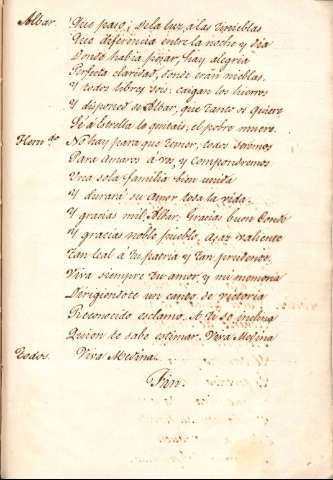 Albar. Que paso, de la luz, a las tinieblas
Que diferencia entre la noche y dia
Donde habia pesar, hay alegria
Perfecta claridad, donde eran nieblas.
Y todos libres sois: caigan los hierros
Y disponed de Albar, que tanto os quiere
Hern.do No hay para que temer, todos seremos
Para amaros a vos, y compondremos
Una sola familia bien unida
Y durará su amor toda la vida.
Y gracias mil, Albar. Gracias buen Conde
Y gracias noble pueblo, Asaz valiente
Tan leal á tu patria y tan prudente.
Viva siempre tu amor, y mi memoria
Dirigiendote un canto de victoria
Reconocido esclamo. A ti se inclina
Quien te sabe estimar. Viva Medina
Todos. Viva Medina.
Fin.